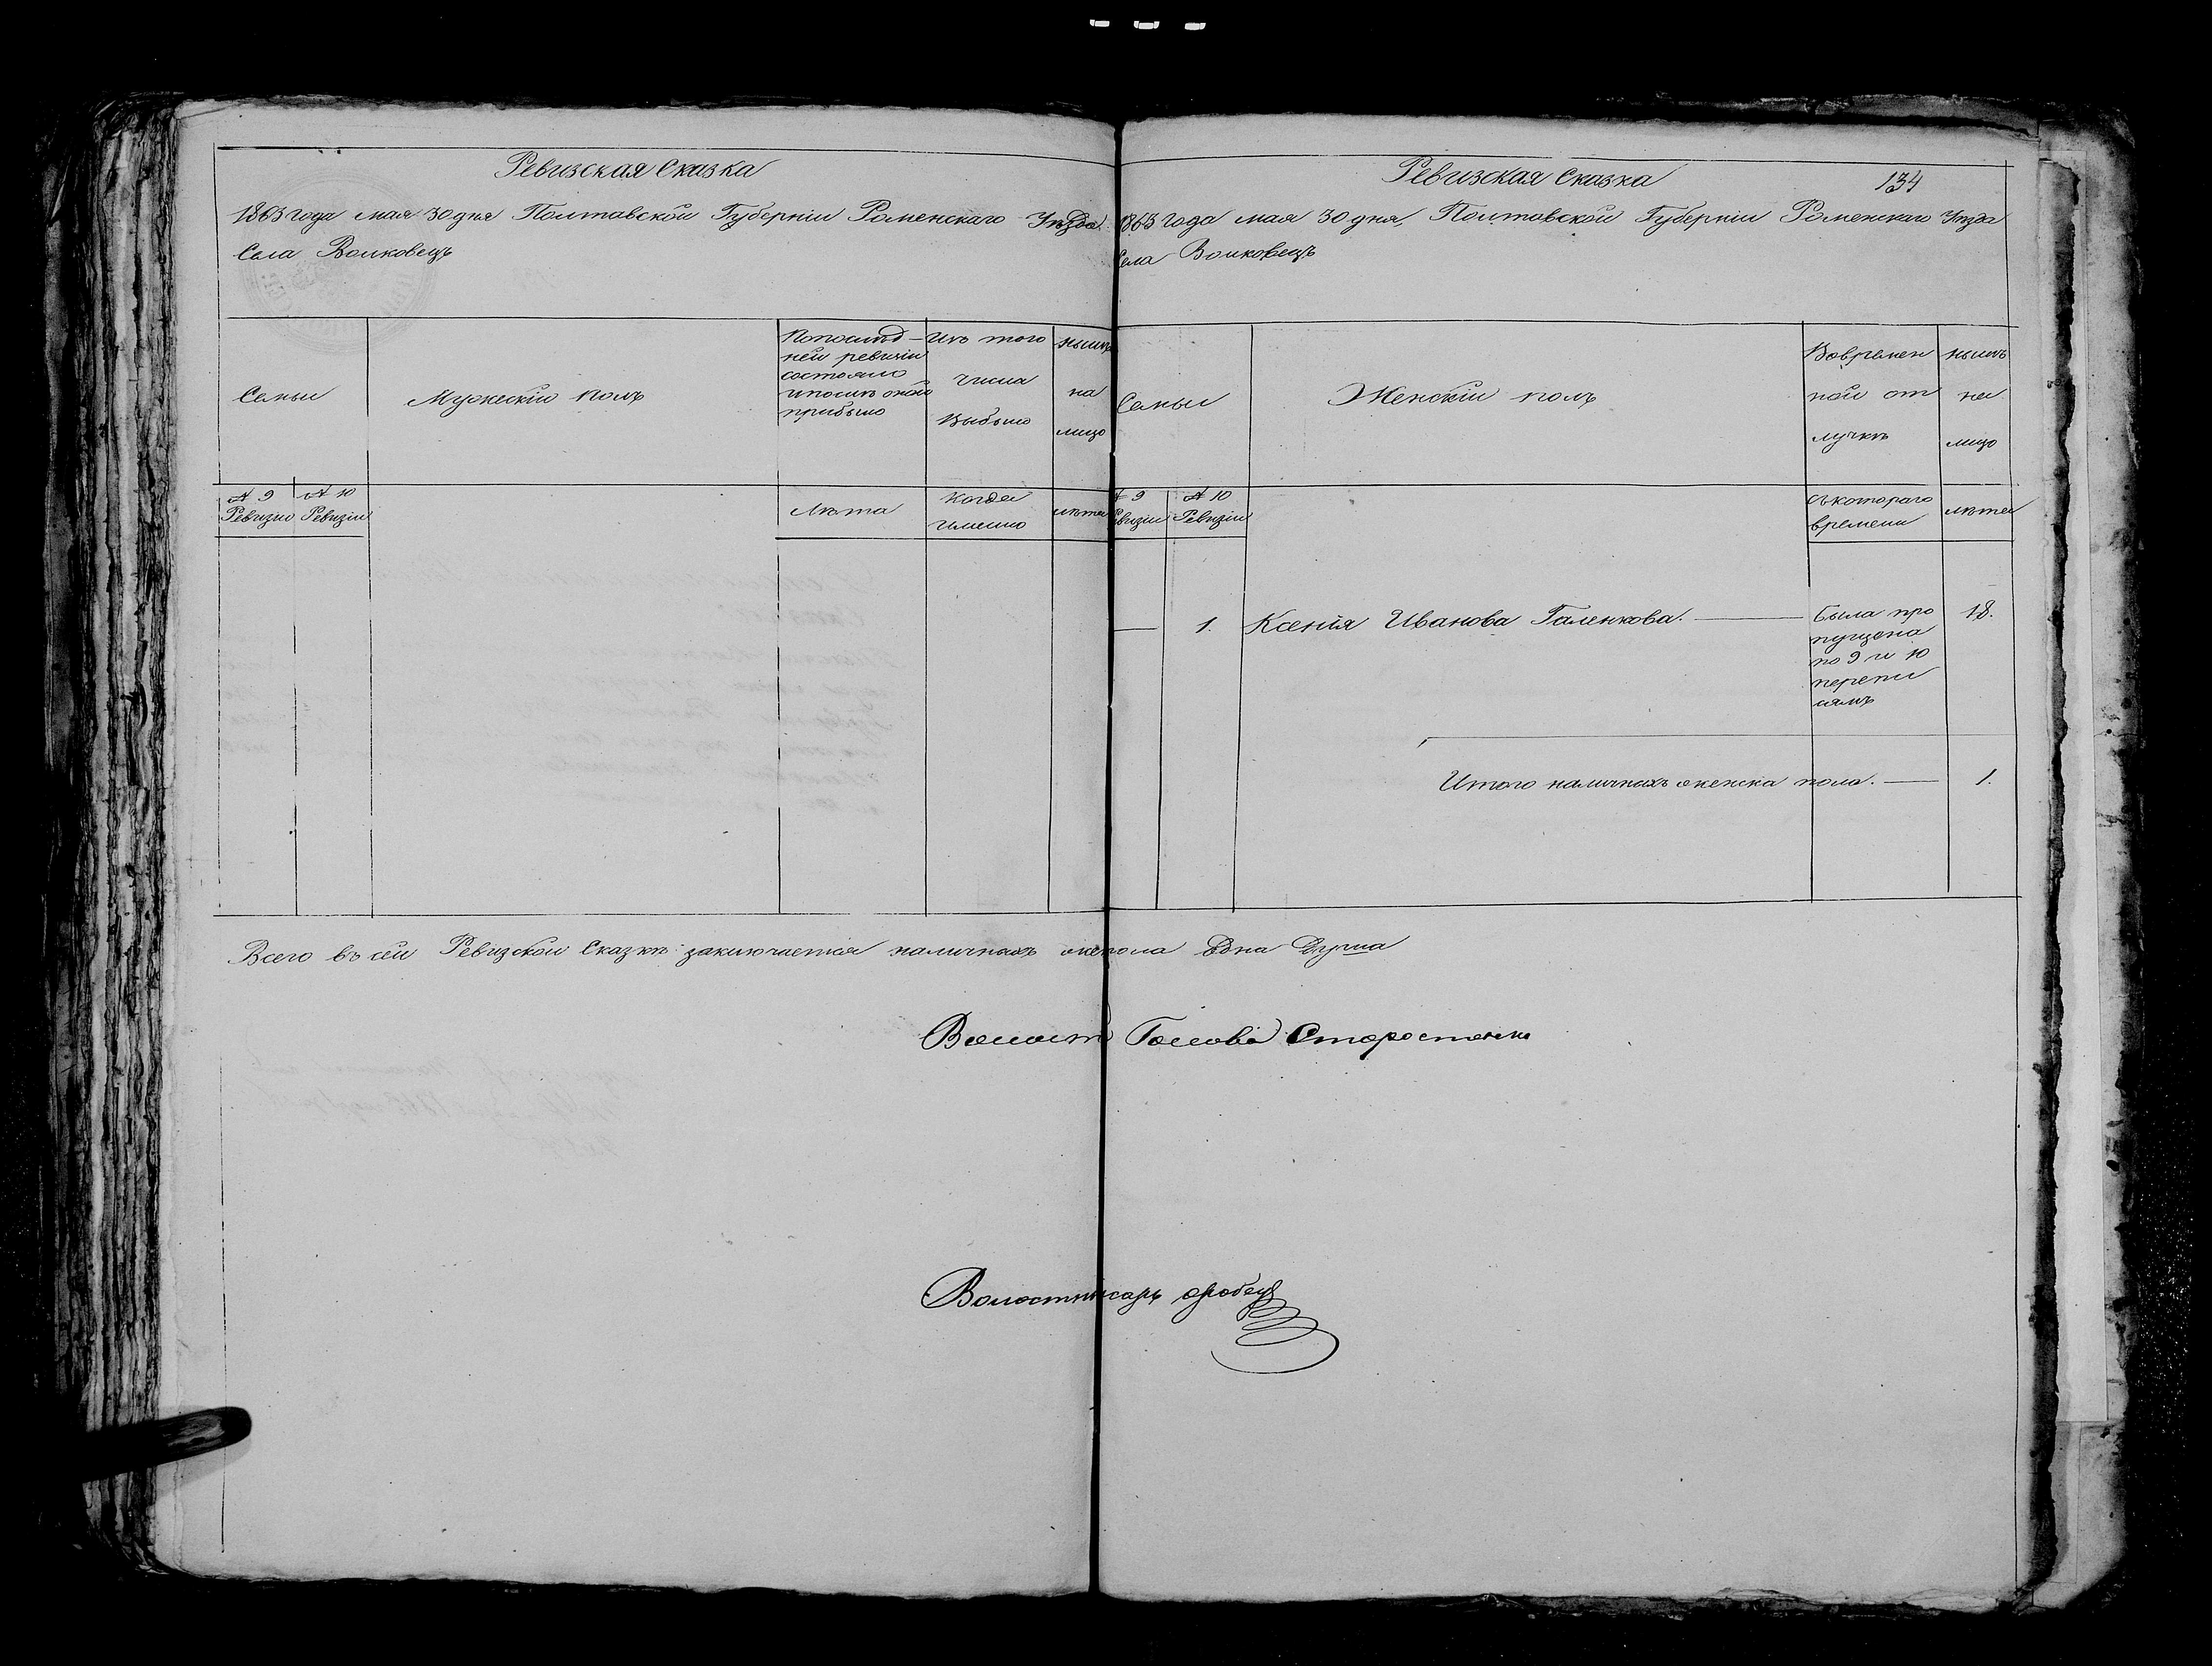 Ревизская Сказка
1863 года мая 30 дня Полтавской Губерніи Роменскаго Уѣзда
Села Волковецъ
Семьи
Мужескій полъ
По послѣд-
ней ревизіи
состояло
и послѣ оной
прибыло
Изъ того
числа
выбыло
нынѣ
на
лицо
№ 9
Ревизіи
№ 10
Ревизіи
Лѣта
Когда
именно
лѣта
Ревизская Сказка
134
1863 года мая 30 дня, Полтавской Губерніи Роменскаго Уѣзда
Села Волковецъ
Семьи
Женскій полъ
Вовремен
ной от
лучкѣ
нынѣ
на
лицо
№ 9
Ревизіи
№ 10
Ревизіи
съ котораго
времени
лѣта
1. Ксенія Иванова Галенкова. — была про 18.
пущена
по 9 и 10
перепи
сямъ
Итого наличныхъ женска пола. — 1.
Всего въ сей Ревизской Сказкѣ заключается наличныхъ жен пола Една Душа
Волост Голова Старостенко
Волостписарь